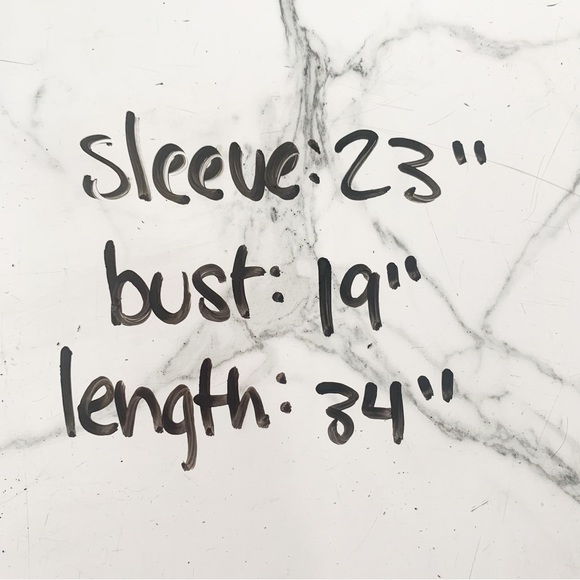 sleeve: 23"
bust: 19"
length: 34"